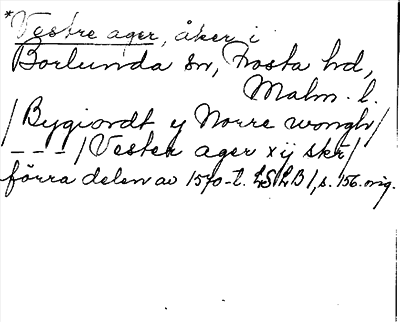 *Vestre ager, åker i
Borlunda sn, Frosta hd,
Malm. l.
/Bygiordt y Norre wongh/
---/Vester ager x ij skr/
förra delen av 1570-t. LSLB 1, s. 156. orig.